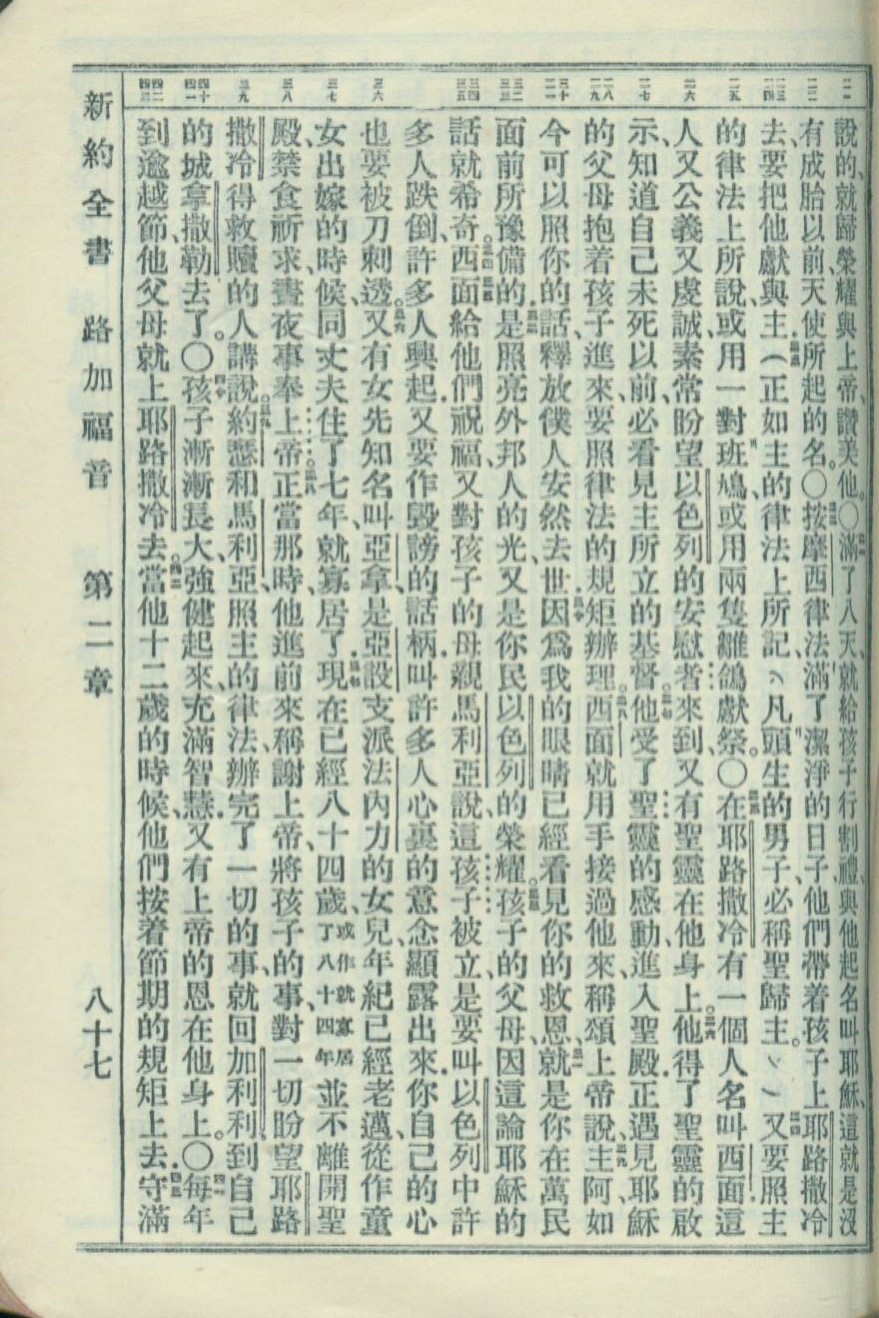 說的、就歸榮耀與上帝、讚美他。〇滿了八天、就給孩子行割禮、與他起名叫耶穌、這就是沒
有成胎以前、天使所起的名。〇按摩西律法滿了潔淨的日子、他們帶着孩子上耶路撒冷
去、要把他獻與主、（正如主的律法上所記、凡頭生的男子、必稱聖歸主。）又要照主
的律法上所說、或用一對班鳩、或用兩隻雛鴿獻祭。〇在耶路撒冷有一個人名叫西面、這
人又公義又虔誠、素常盼望以色列的安慰者來到、又有聖靈在他身上。他得了聖靈的啟
示、知道自己未死以前、必看見主所立的基督。他受了聖靈的感動、進入聖殿、正遇見耶穌
的父母抱着孩子進來、要照律法的規矩辦理。西面就用手接過他來、稱頌上帝說、主阿、如
今可以照你的話、釋放僕人安然去世、因爲我的眼睛已經看見你的救恩、就是你在萬民
面前所豫備的、是照亮外邦人的光、又是你民以色列的榮耀。孩子的父母、因這論耶穌的
話就希奇。西面給他們祝福、又對孩子的母親馬利亞說、這孩子被立、是要叫以色列中許
多人跌倒、許多人興起、又要作毀謗的話柄、叫許多人心裏的意念顯露出來、你自己的心
也要被刀刺透。又有女先知名叫亞拿、是亞設支派法內力的女兒、年紀已經老邁、從作童
女出嫁的時候、同丈夫住了七年、就寡居了、現在已經八十四歲、或作就寡居了八十四年並不離開聖
殿、禁食祈求、晝夜事奉上帝。正當那時、他進前來稱謝上帝、將孩子的事、對一切盼望耶路
撒冷得救贖的人講說。約瑟和馬利亞、照主的律法、辦完了一切的事、就回加利利、到自己
的城拿撒勒去了。〇孩子漸漸長大、強健起來、充滿智慧、又有上帝的恩在他身上。〇每年
到逾越節、他父母就上耶路撒冷去。當他十二歲的時候、他們按着節期的規矩上去、守滿
新約全書　路加福音　第二章　八十七